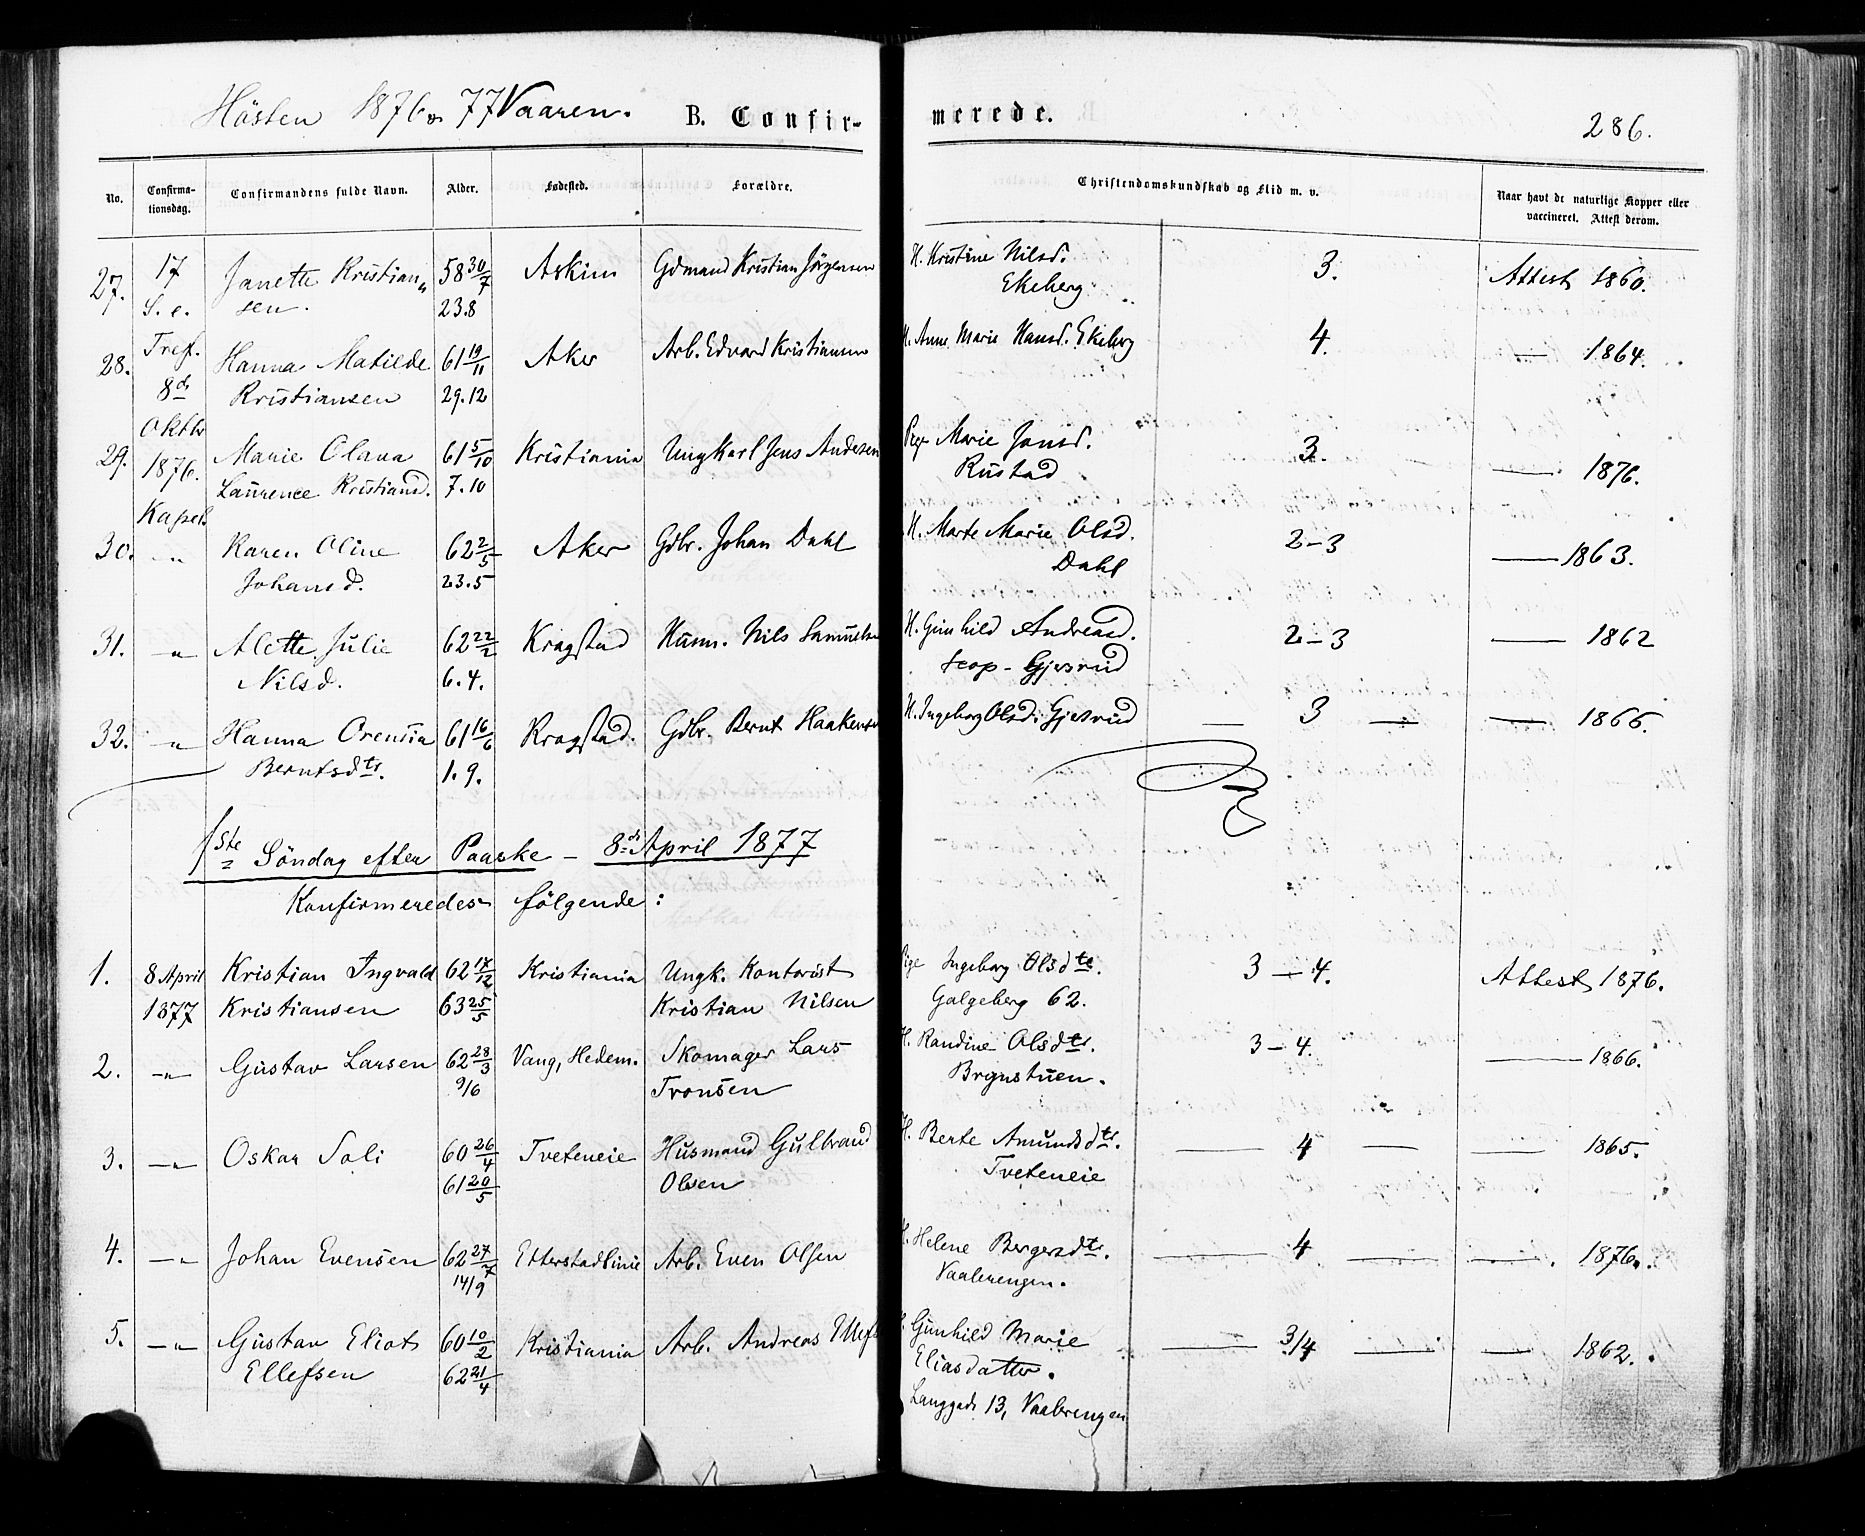 Hösten 1876 og 77 Vaaren.
B. Confir-
merede.
286.
No.
Confirma-
tionsdag.
Confirmandens fulde Navn.
Alder.
Fødested.
Forældre.
Christendomskundskab og Flid m. v.
Naar havt de naturlige Kopper eller
vaccineret. Attest derom.
27. 17 Janette Kristian„ 58 30/7 Askim Gdmand Kristian Jörgensen H. Kristine Nilsd. 3. Attest 1860.
S. e. sen. 23.8 Ekeberg
28. Tref. Hanna Matilde 61 19/11 Aker Arb. Edvard Kristiansen H. Anne Marie Hansd. Ekeberg 4. — 1864.
8de Kristiansen 29.12
Oktbr
29. 1876. Marie Olava 61 5/10 Kristiania Ungkarl Jens Andersen Pige Marie Jansd. 3. — 1876.
Laurence Kristiansd. 7.10 Rustad
Kapel.
30. -„- Karen Oline 62 2/5 Aker Gdbr. Johan Dahl H. Marte Marie Olsd. 2-3 — 1863.
Johansd. 23.5 Dahl
31. -„- Alette Julie 62 22/2 Kragstad Husm. Nils Samuels H. Gunhild Andreasd. 2-3 — 1862
Nilsd. 6.4. Gjesrud
32. -„- Hanna Orensia 61 16/6 Kragstad. Gdbr. Bernt Haakens H. Ingeborg Olsd. Gjesrud — 3 — — 1866.
Berntsdtr. 1.9.
1ste Söndag efter Paaske – 8de April 1877
Konfirmeredes følgende:
1. 8 April Kristian Ingvald 62 17/12 Kristiania Ungk. Kontorist Pige Ingeborg Olsdtr. 3 — 4. Attest 1876.
1877 Kristiansen 63 25/5 Kristian Nilsen Galgeberg 62.
2. -„- Gustav Larsen 62 28/3 Vang, Hedem. Skomager Lars H. Randine Olsdtr. 3-4. — 1866.
9/6 Tronsen Brynstuen.
3. -„- Oskar Soli 60 26/4 Tveteneie Husmand Gulbrand H. Berte Amundsdtr. — 4 — — 1865.
61 20/5 Olsen Tveteneie
4. -„- Johan Evensen 62 27/7 Etterstadlinie Arb. Even Olsen H. Helene Bergersdtr. — 4 — — 1876.
14/9 Vaalerengen.
5. -„- Gustav Eliot 60 10/2 Kristiania Arb. Andreas Ellefs H. Gunhild Marie — 3/4 — — 1862.
Ellefsen 62 21/4 Eliasdatter.
Langgade 13, Vaalerengen